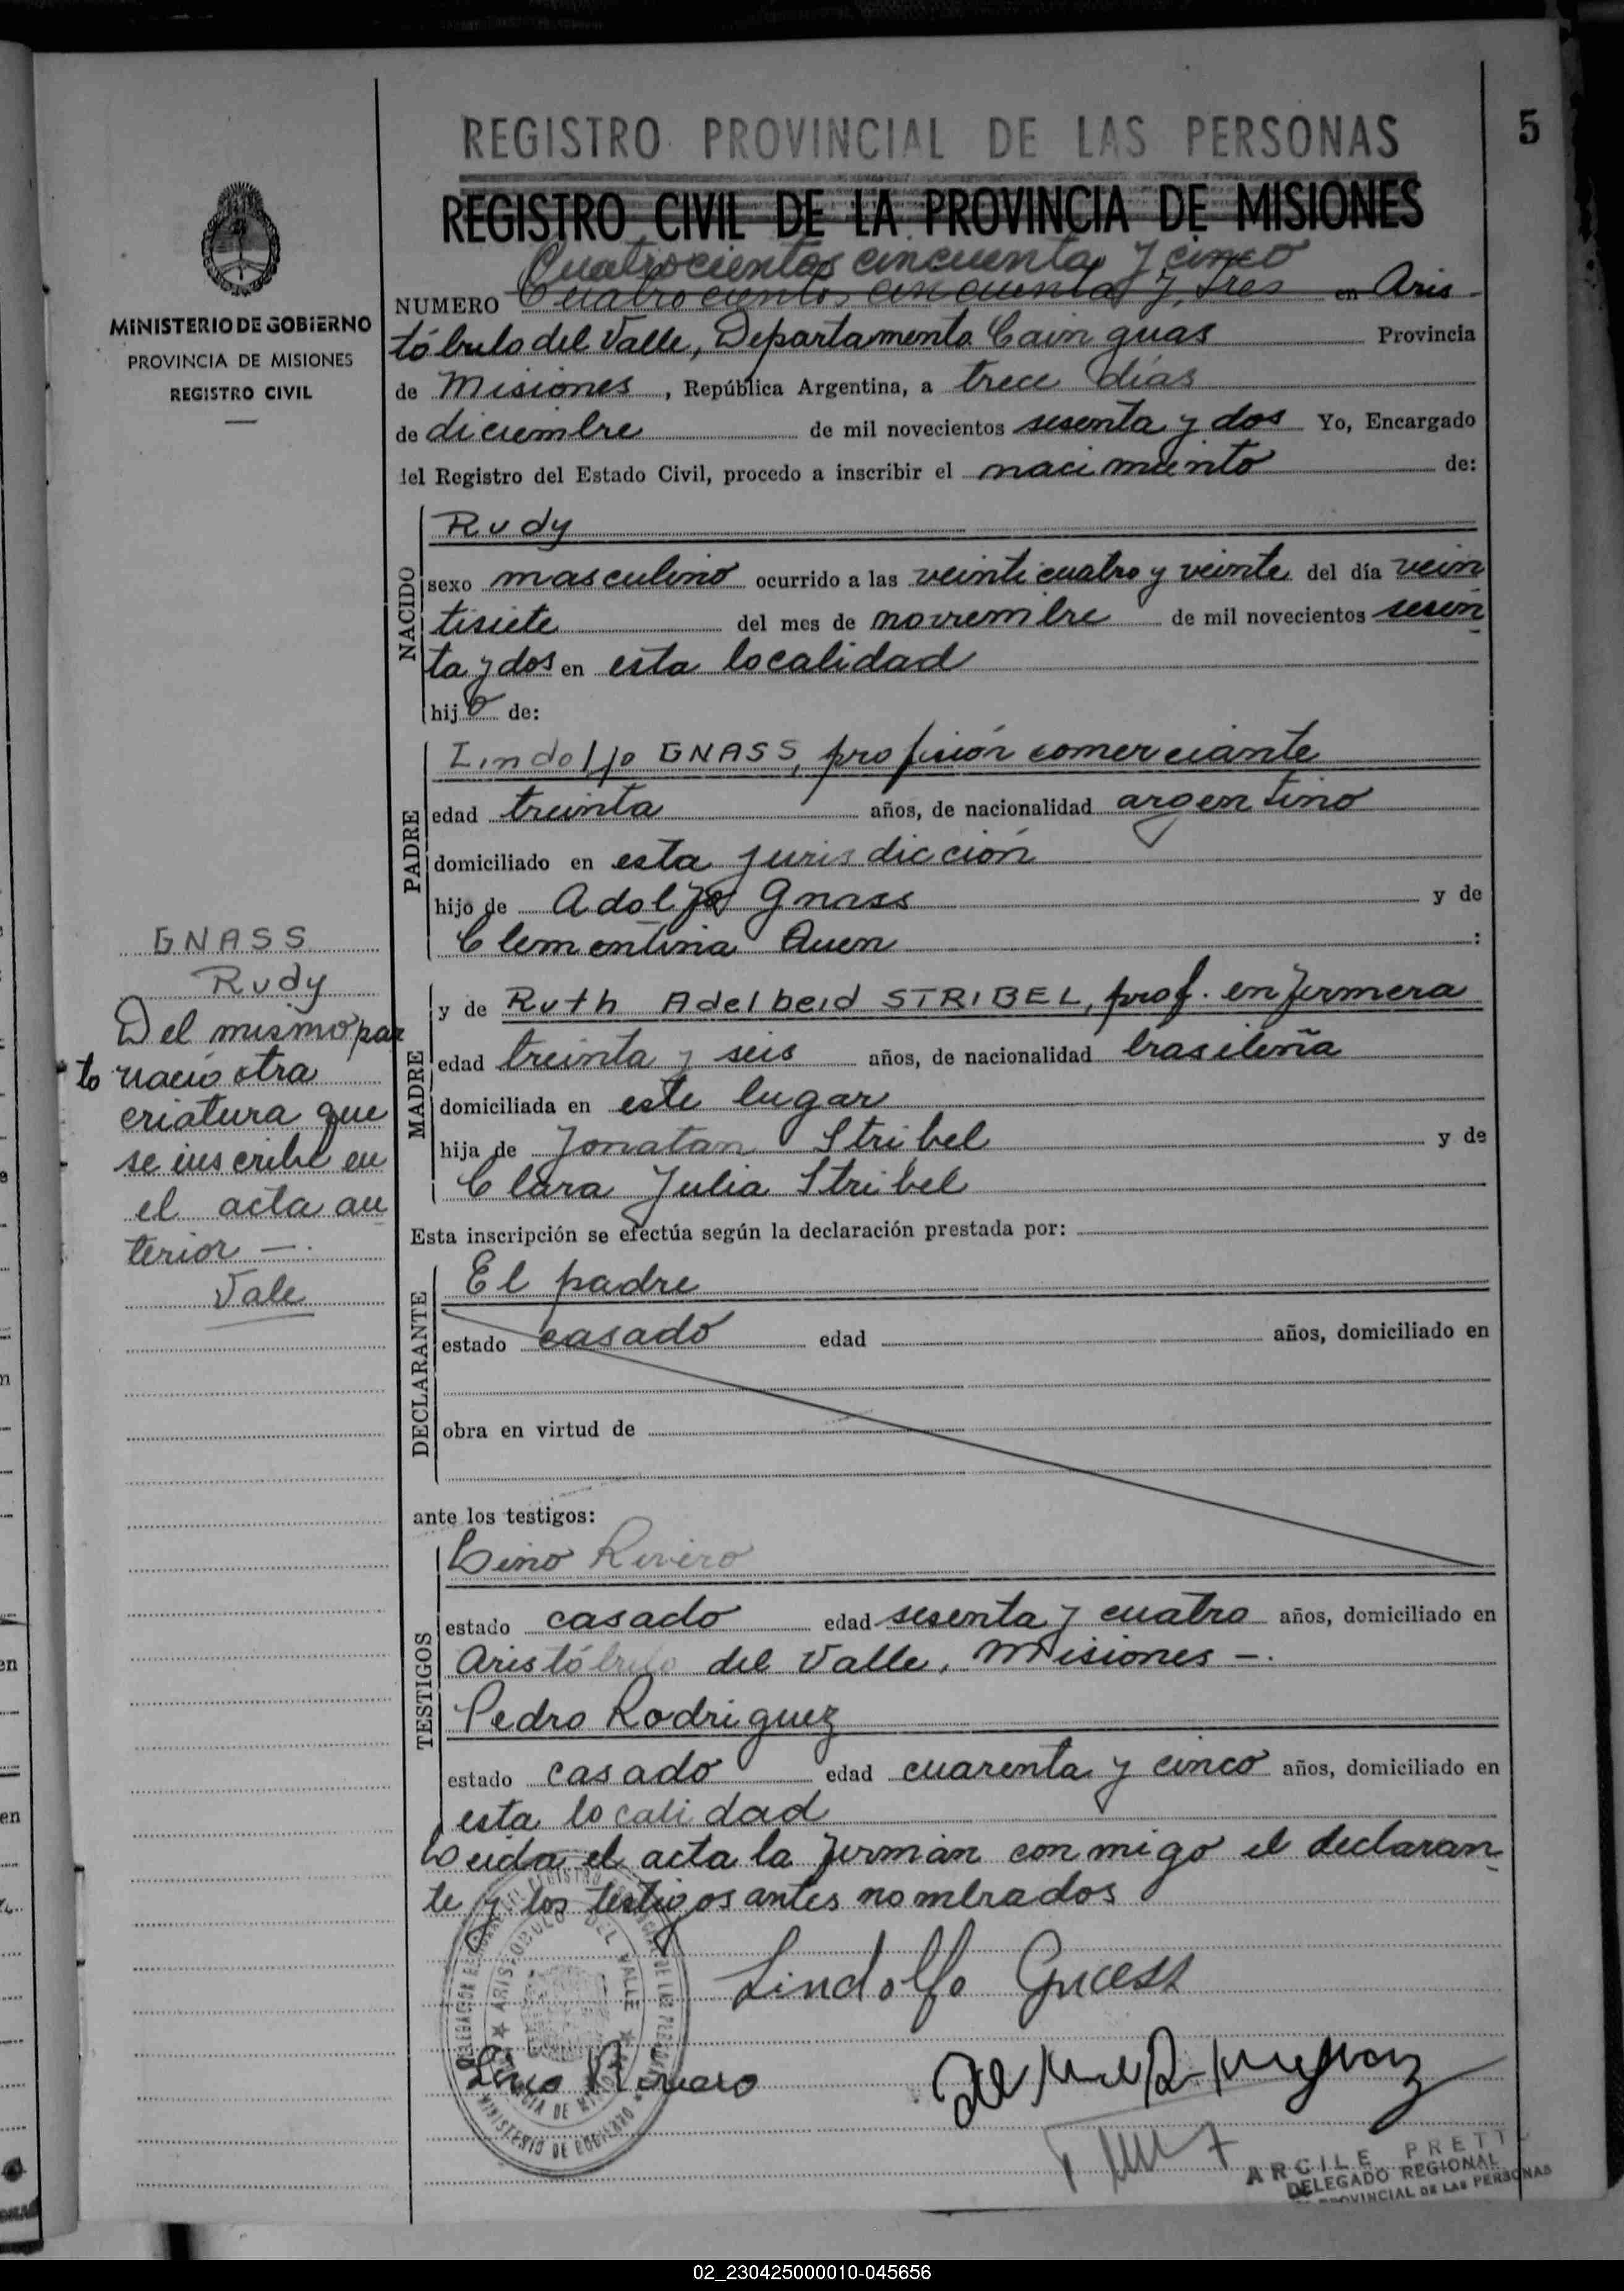 5
REGISTRO PROVINCIAL DE LAS PERSONAS
REGISTRO CIVIL DE LA PROVINCIA DE MISIONES
MINISTERIO DE GOBIERNO
PROVINCIA DE MISIONES
REGISTRO CIVIL
Cuatrocientos cincuenta y cinco
NUMERO Cuatrocientos cincuenta y tres en Aris
tóbulo del Valle, Departamento Cain guas Provincia
de Misiones, República Argentina, a trece días
de diciembre de mil novecientos sesenta y dos Yo, Encargado
del Registro del Estado Civil, procedo a inscribir el nacimiento de:
NACIDO
Rudy
sexo masculino ocurrido a las veinticuatro y veinte del día vein
tisiete del mes de noviembre de mil novecientos sesen
ta y dos en esta localidad
hijo de:
PADRE
Lindolfo GNASS, profesión comerciante
edad treinta años, de nacionalidad argentino
domiciliado en esta jurisdicción
hijo de Adolfo Gnass y de
Clementina Quen :
GNASS
Rudy
Del mismo par
to nació otra
criatura que
se inscribe en
el acta an
terior —.
Vale
MADRE
y de Ruth Adelbeid STRIBEL, prof. enfermera
edad treinta y seis años, de nacionalidad brasileña
domiciliada en este lugar
hija de Jonatan Stribel y de
Clara Julia Stribel
Esta inscripción se efectúa según la declaración prestada por:
DECLARANTE
El padre
estado casado edad años, domiciliado en
obra en virtud de
ante los testigos:
TESTIGOS
Lino Rivero
estado casado edad sesenta y cuatro años, domiciliado en
Aristóbulo del Valle, Misiones —.
Pedro Rodriguez
estado casado edad cuarenta y cinco años, domiciliado en
esta localidad
Leida el acta la firman conmigo el declaran
te y los testigos antes nombrados
Lindolfo Gnass
Lino Rivero
ARISTOBULO DEL VALLE
MINISTERIO DE GOBIERNO
ARCILE PRETT
DELEGADO REGIONAL
PROVINCIAL DE LAS PERSONAS
02_230425000010-045656